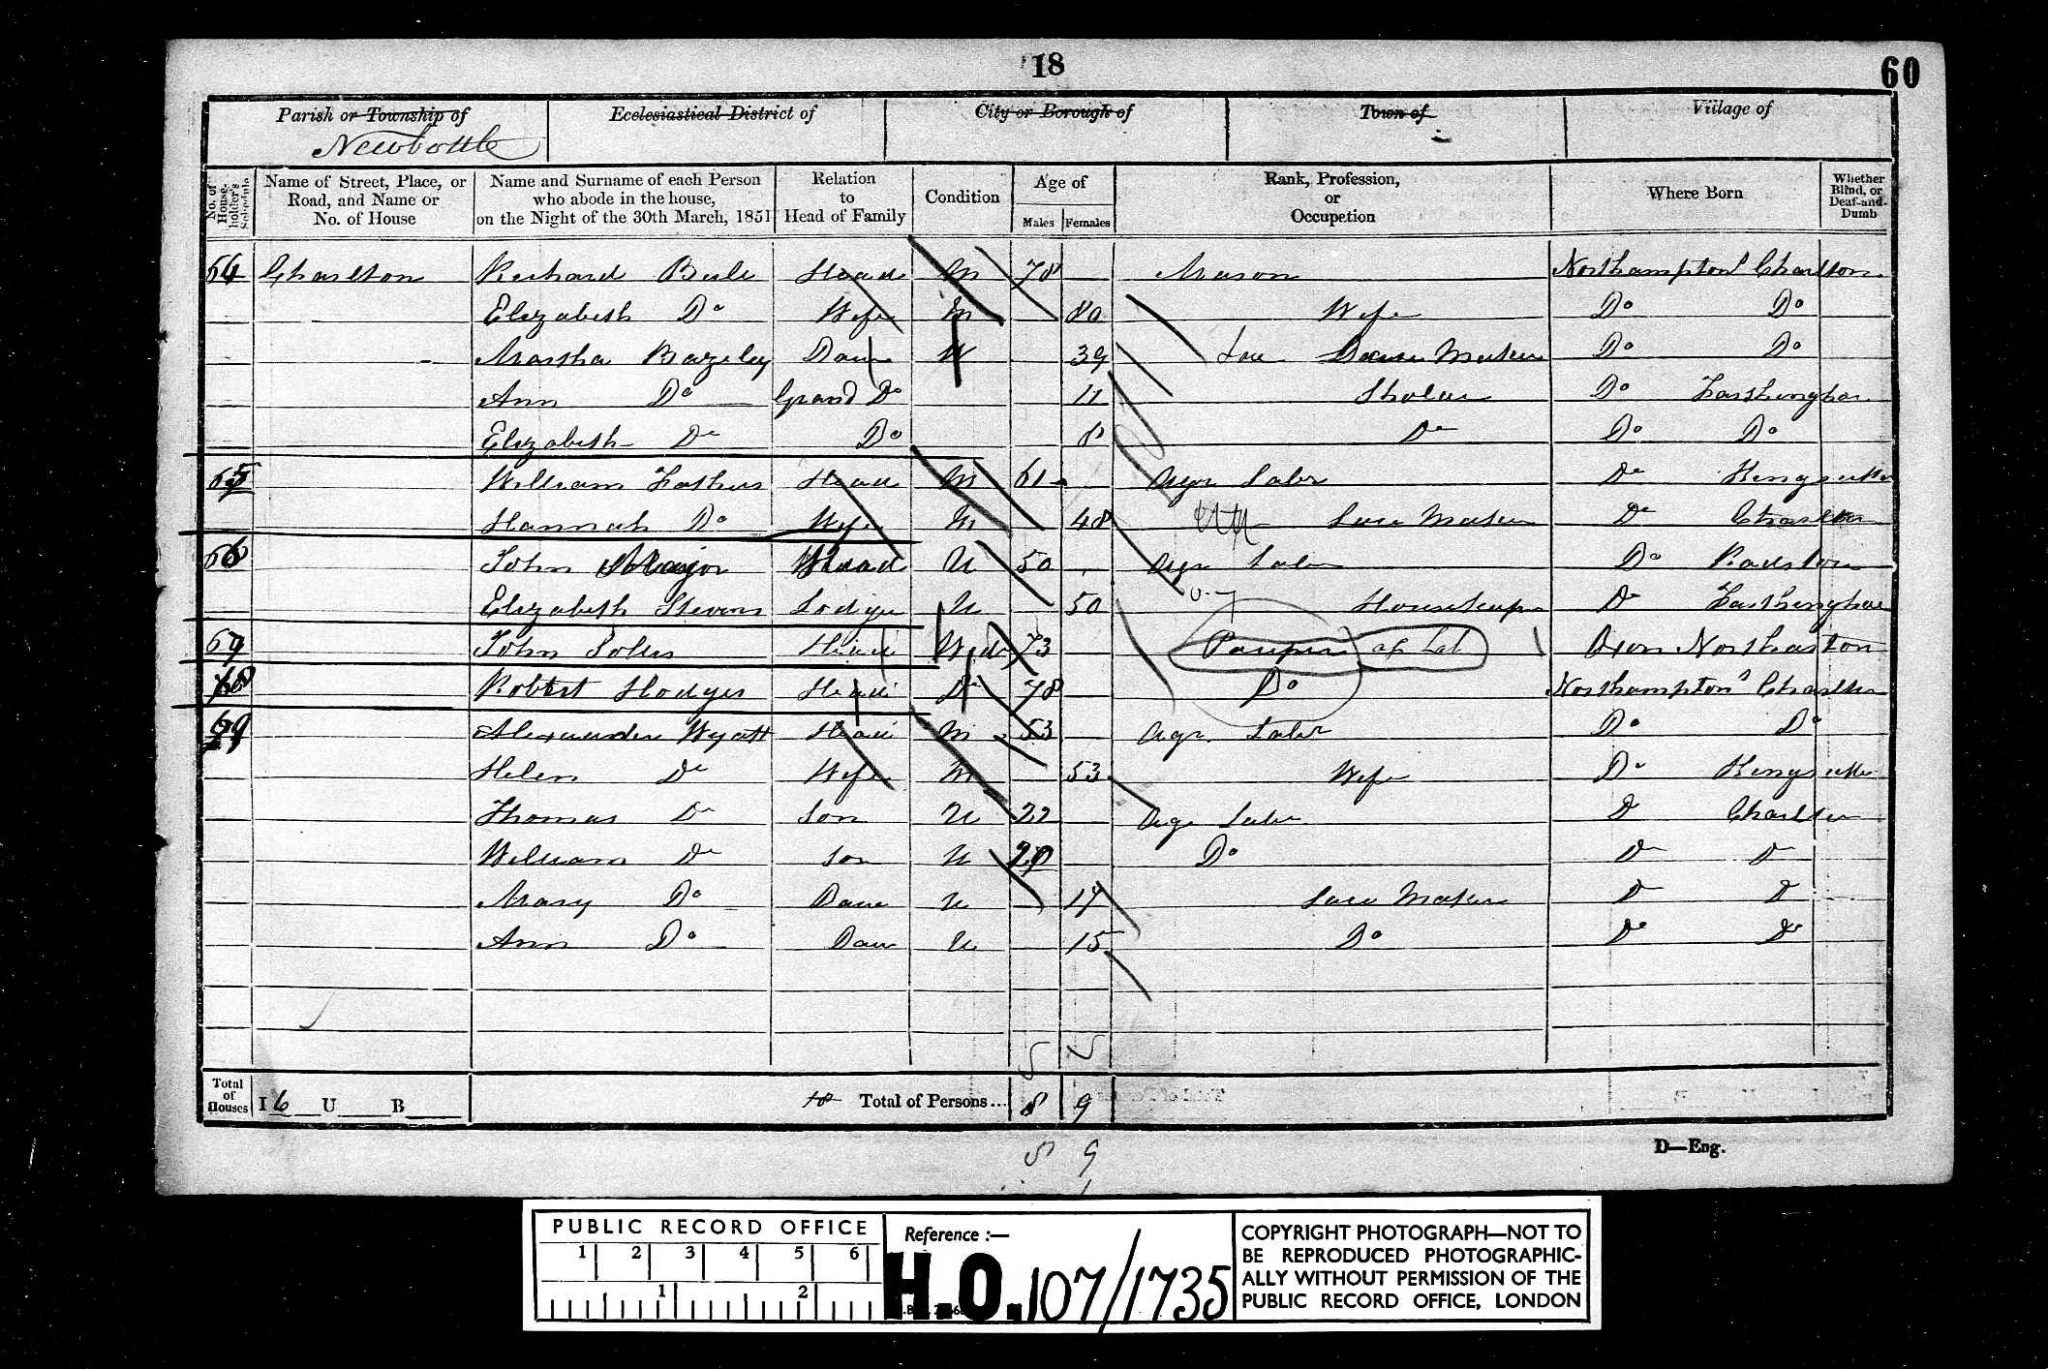 18
60
Parish or Township of Ecclesiastical District of City or Borough of Town of Village of
Newbottle
No. of Householder's Schedule Name of Street, Place, or Road, and Name or No. of House Name and Surname of each Person who abode in the house, on the Night of the 30th March, 1851 Relation to Head of Family Condition Age of Males Females Rank, Profession, or Occupation Where Born Whether Blind, or Deaf-and-Dumb
64 Charlton Richard Head M 78 Mason Northampton Charlton
Elizabeth Do Wife M 80 Wife Do Do
Martha Bazeley Daur W 39 Lace Maker Do Do
Ann Do Grand Do 11 Sholar Do Farthinghoe
Elizabeth Do Do 8 Do Do Do
65 William Head M 61 Agr Labr Do Kingsutton
Hannah Do Wife M 48 Lace Maker Do Charlton
66 John Major Head U 50 Agr Labr Do Radstone
Elizabeth Stevens Lodger U 50 Housekeeper Do Farthinghoe
67 John Head Widr 73 Pauper Ag Lab Oxon Northaston
68 Robert Hodges Head Do 78 Do Northampton Charlton
69 Alexander Wyatt Head M 53 Agr Labr Do Do
Helen Do Wife M 53 Wife Do Kingsutton
Thomas Do Son U 22 Agr Labr Do Charlton
William Do Son U 20 Do Do Do
Mary Do Daur U 17 Lace Maker Do Do
Ann Do Daur U 15 Do Do Do
Total of Houses I 6 U B 18 Total of Persons... 8 9
8 9
D—Eng.
PUBLIC RECORD OFFICE
1 2 3 4 5 6
1 2
Reference :—
H.O. 107/1735
COPYRIGHT PHOTOGRAPH—NOT TO
BE REPRODUCED PHOTOGRAPHIC-
ALLY WITHOUT PERMISSION OF THE
PUBLIC RECORD OFFICE, LONDON